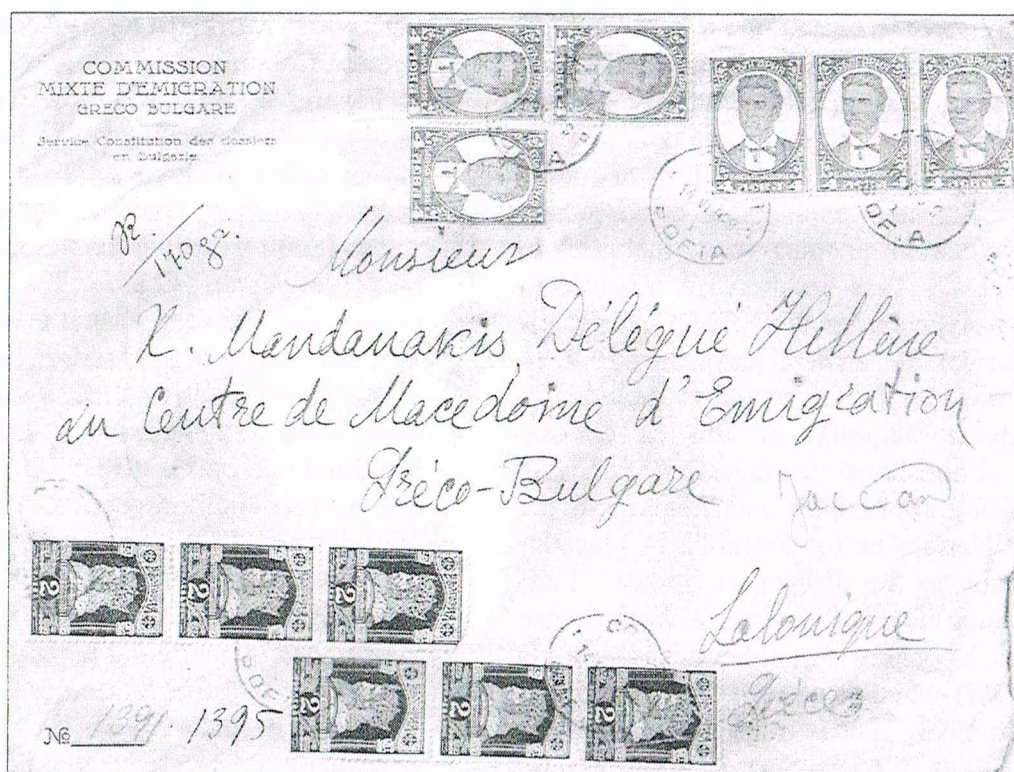 COMMISSION
MIXTE D'EMIGRATION
GRECO BULGARE
Service Constitution des dossiers
en Bulgarie
R/1708a
Monsieur
K. Mandanakis Délégué Hellène
du Centre de Macedoine d'Emigration
Gréco-Bulgare
Salonique
Grèce
No 1391-1395
1
1
SOFIA
SOFIA
2
2
2
2
2
2